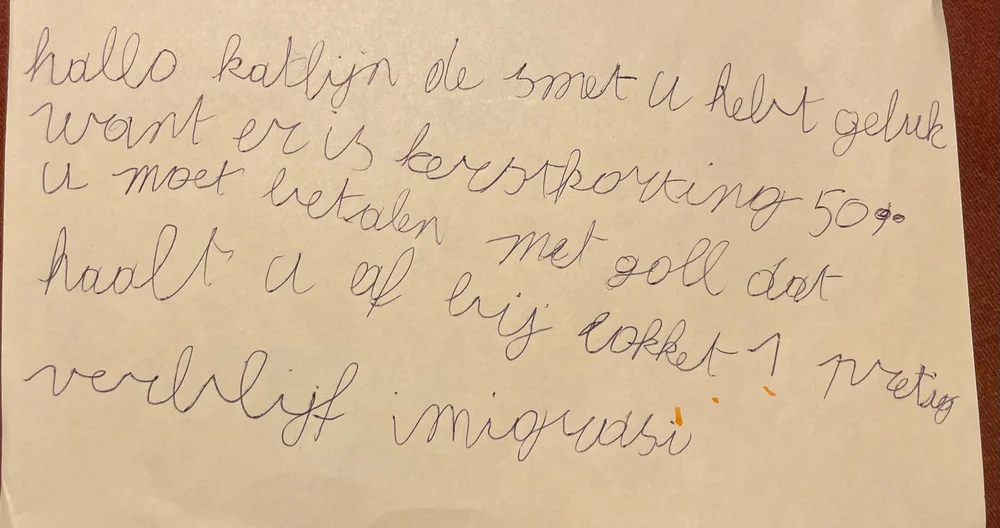 hallo katlijn de smet u hebt geluk
want er is kerstkorting 50%
u moet betalen met goll dat
haalt u af bij lokket 1 pretig
verblijf imigrasi